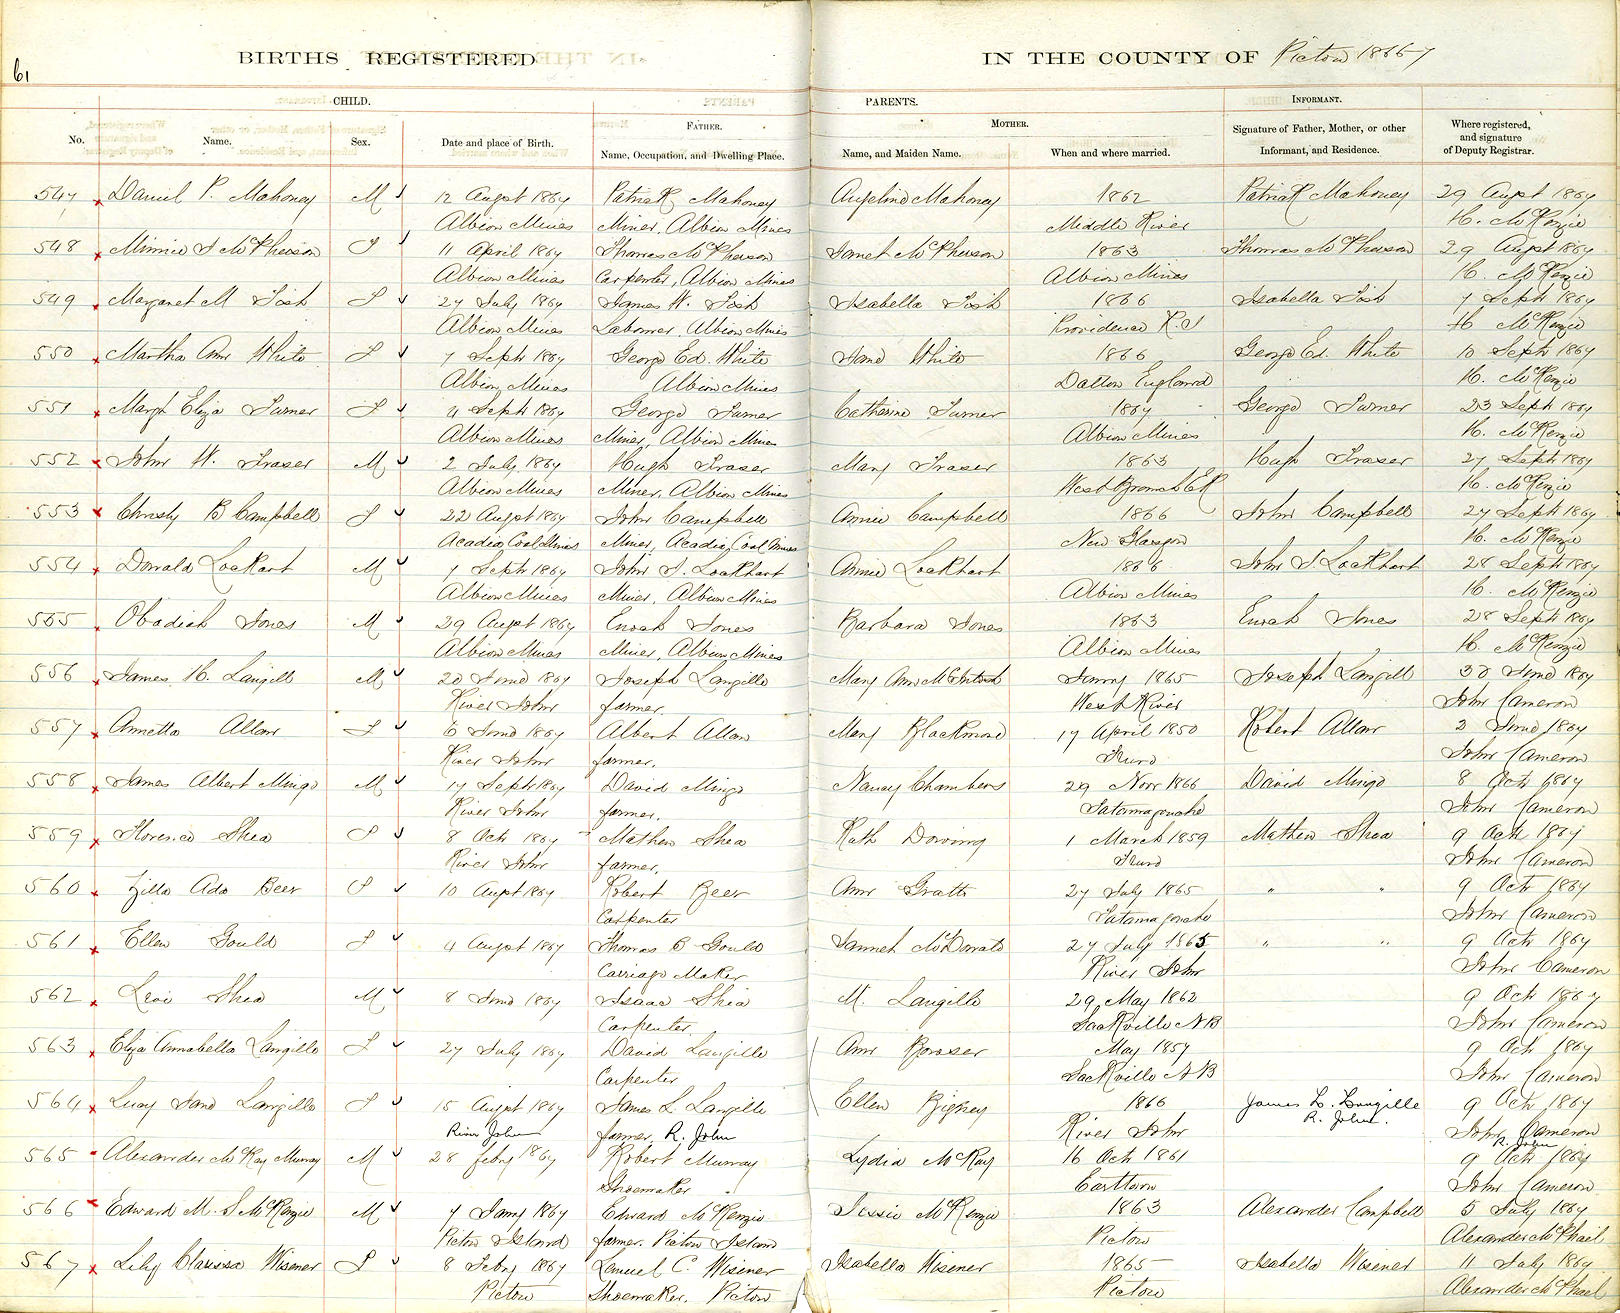 61
BIRTHS REGISTERED IN THE COUNTY OF Pictou 1866-7
CHILD. PARENTS. INFORMANT.
FATHER. MOTHER.
No. Name. Sex. Date and place of Birth. Name, Occupation, and Dwelling Place. Name, and Maiden Name. When and where married. Signature of Father, Mother, or other Informant, and Residence. Where registered, and signature of Deputy Registrar.
547 Daniel P. Mahoney M 12 Augst 1867 Patrick Mahoney Angelina Mahoney 1862 Patrick Mahoney 29 Augst 1867
Albion Mines Miner, Albion Mines Middle River H. McKenzie
548 Minnie J McPherson F 11 April 1867 Thomas McPherson Janet McPherson 1863 Thomas McPherson 29 Augst 1867
Albion Mines Carpenter, Albion Mines Albion Mines H. McKenzie
549 Margaret M Tosh F 27 July 1867 James W. Tosh Isabella Tosh 1866 Isabella Tosh 7 Septr 1867
Albion Mines Labourer, Albion Mines Providence R.I H McKenzie
550 Martha Ann White F 7 Septr 1867 George Ed. White Jane White 1866 George Ed. White 10 Septr 1867
Albion Mines Albion Mines Dalton England H. McKenzie
551 Margt Eliza Turner F 4 Septr 1867 George Turner Catherine Turner 1867 George Turner 23 Septr 1867
Albion Mines Miner, Albion Mines Albion Mines H. McKenzie
552 John W. Fraser M 2 July 1867 Hugh Fraser Mary Fraser 1863 Hugh Fraser 27 Septr 1867
Albion Mines Miner, Albion Mines West Branch ER H. McKenzie
553 Christy B Campbell F 22 Augst 1867 John Campbell Annie Campbell 1866 John Campbell 27 Septr 1867
Acadia Coal Mines Miner, Acadia Coal Mines New Glasgow H. McKenzie
554 Donald Lockart M 7 Septr 1867 John J. Lockhart Annie Lockhart 1866 John J Lockhart 28 Septr 1867
Albion Mines Miner, Albion Mines Albion Mines H. McKenzie
555 Obadiah Jones M 29 Augst 1867 Enoch Jones Barbara Jones 1863 Enoch Jones 28 Septr 1867
Albion Mines Miner, Albion Mines Albion Mines H. McKenzie
556 James H. Langill M 20 June 1867 Joseph Langille Mary Ann McIntosh Jany 1865 Joseph Langill 30 June 1867
River John farmer. West River John Cameron
557 Annetta Allan F 6 June 1867 Albert Allan Mary Blackmore 17 April 1850 Robert Allan 2 June 1867
River John farmer. Truro John Cameron
558 James Albert Mingo M 17 Septr 1867 David Mingo Nancy Chambers 29 Novr 1866 David Mingo 8 Octr 1867
River John farmer. Tatamagouche John Cameron
559 Florence Shea F 8 Octr 1867 Mathew Shea Kath Downing 1 March 1859 Mathew Shea 9 Octr 1867
River John farmer. Truro John Cameron
560 Zilla Ada Beer F 10 Augst 1867 Robert Beer Ann Gratto 27 July 1865 " " 9 Octr 1867
Carpenter Tatamagouche John Cameron
561 Ellen Gould F 4 Augst 1867 Thomas B Gould Hannah McDonald 27 July 1865 " " 9 Octr 1867
Carriage Maker River John John Cameron
562 Levi Shea M 8 June 1867 Isaac Shea M. Langille 29 May 1862 9 Octr 1867
Carpenter. Sackville NB John Cameron
563 Eliza Annabella Langille F 27 July 1867 David Langille Ann Bowser May 1857 9 Octr 1867
Carpenter Sackville NB John Cameron
564 Lucy Jane Langille F 15 Augst 1867 James L. Langille Ellen Bigney 1866 James L. Langille 9 Octr 1867
River John farmer. R. John River John R. John. John Cameron
R. John
565 Alexander McKay Murray M 28 feby 1867 Robert Murray Lydia McKay 16 Oct 1861 9 Octr 1867
Shoemaker Earltown John Cameron
566 Edward M. S McKenzie M 7 Jany 1867 Edward McKenzie Jessie McKenzie 1863 Alexander Campbell 5 July 1867
Pictou Island farmer. Pictou Island Pictou Alexander McPhail
567 Lily Clarissa Wisener F 8 Feby 1867 Samuel C. Wisener Isabella Wisener 1865 Isabella Wisener 11 July 1867
Pictou Shoemaker. Pictou Pictou Alexander McPhail